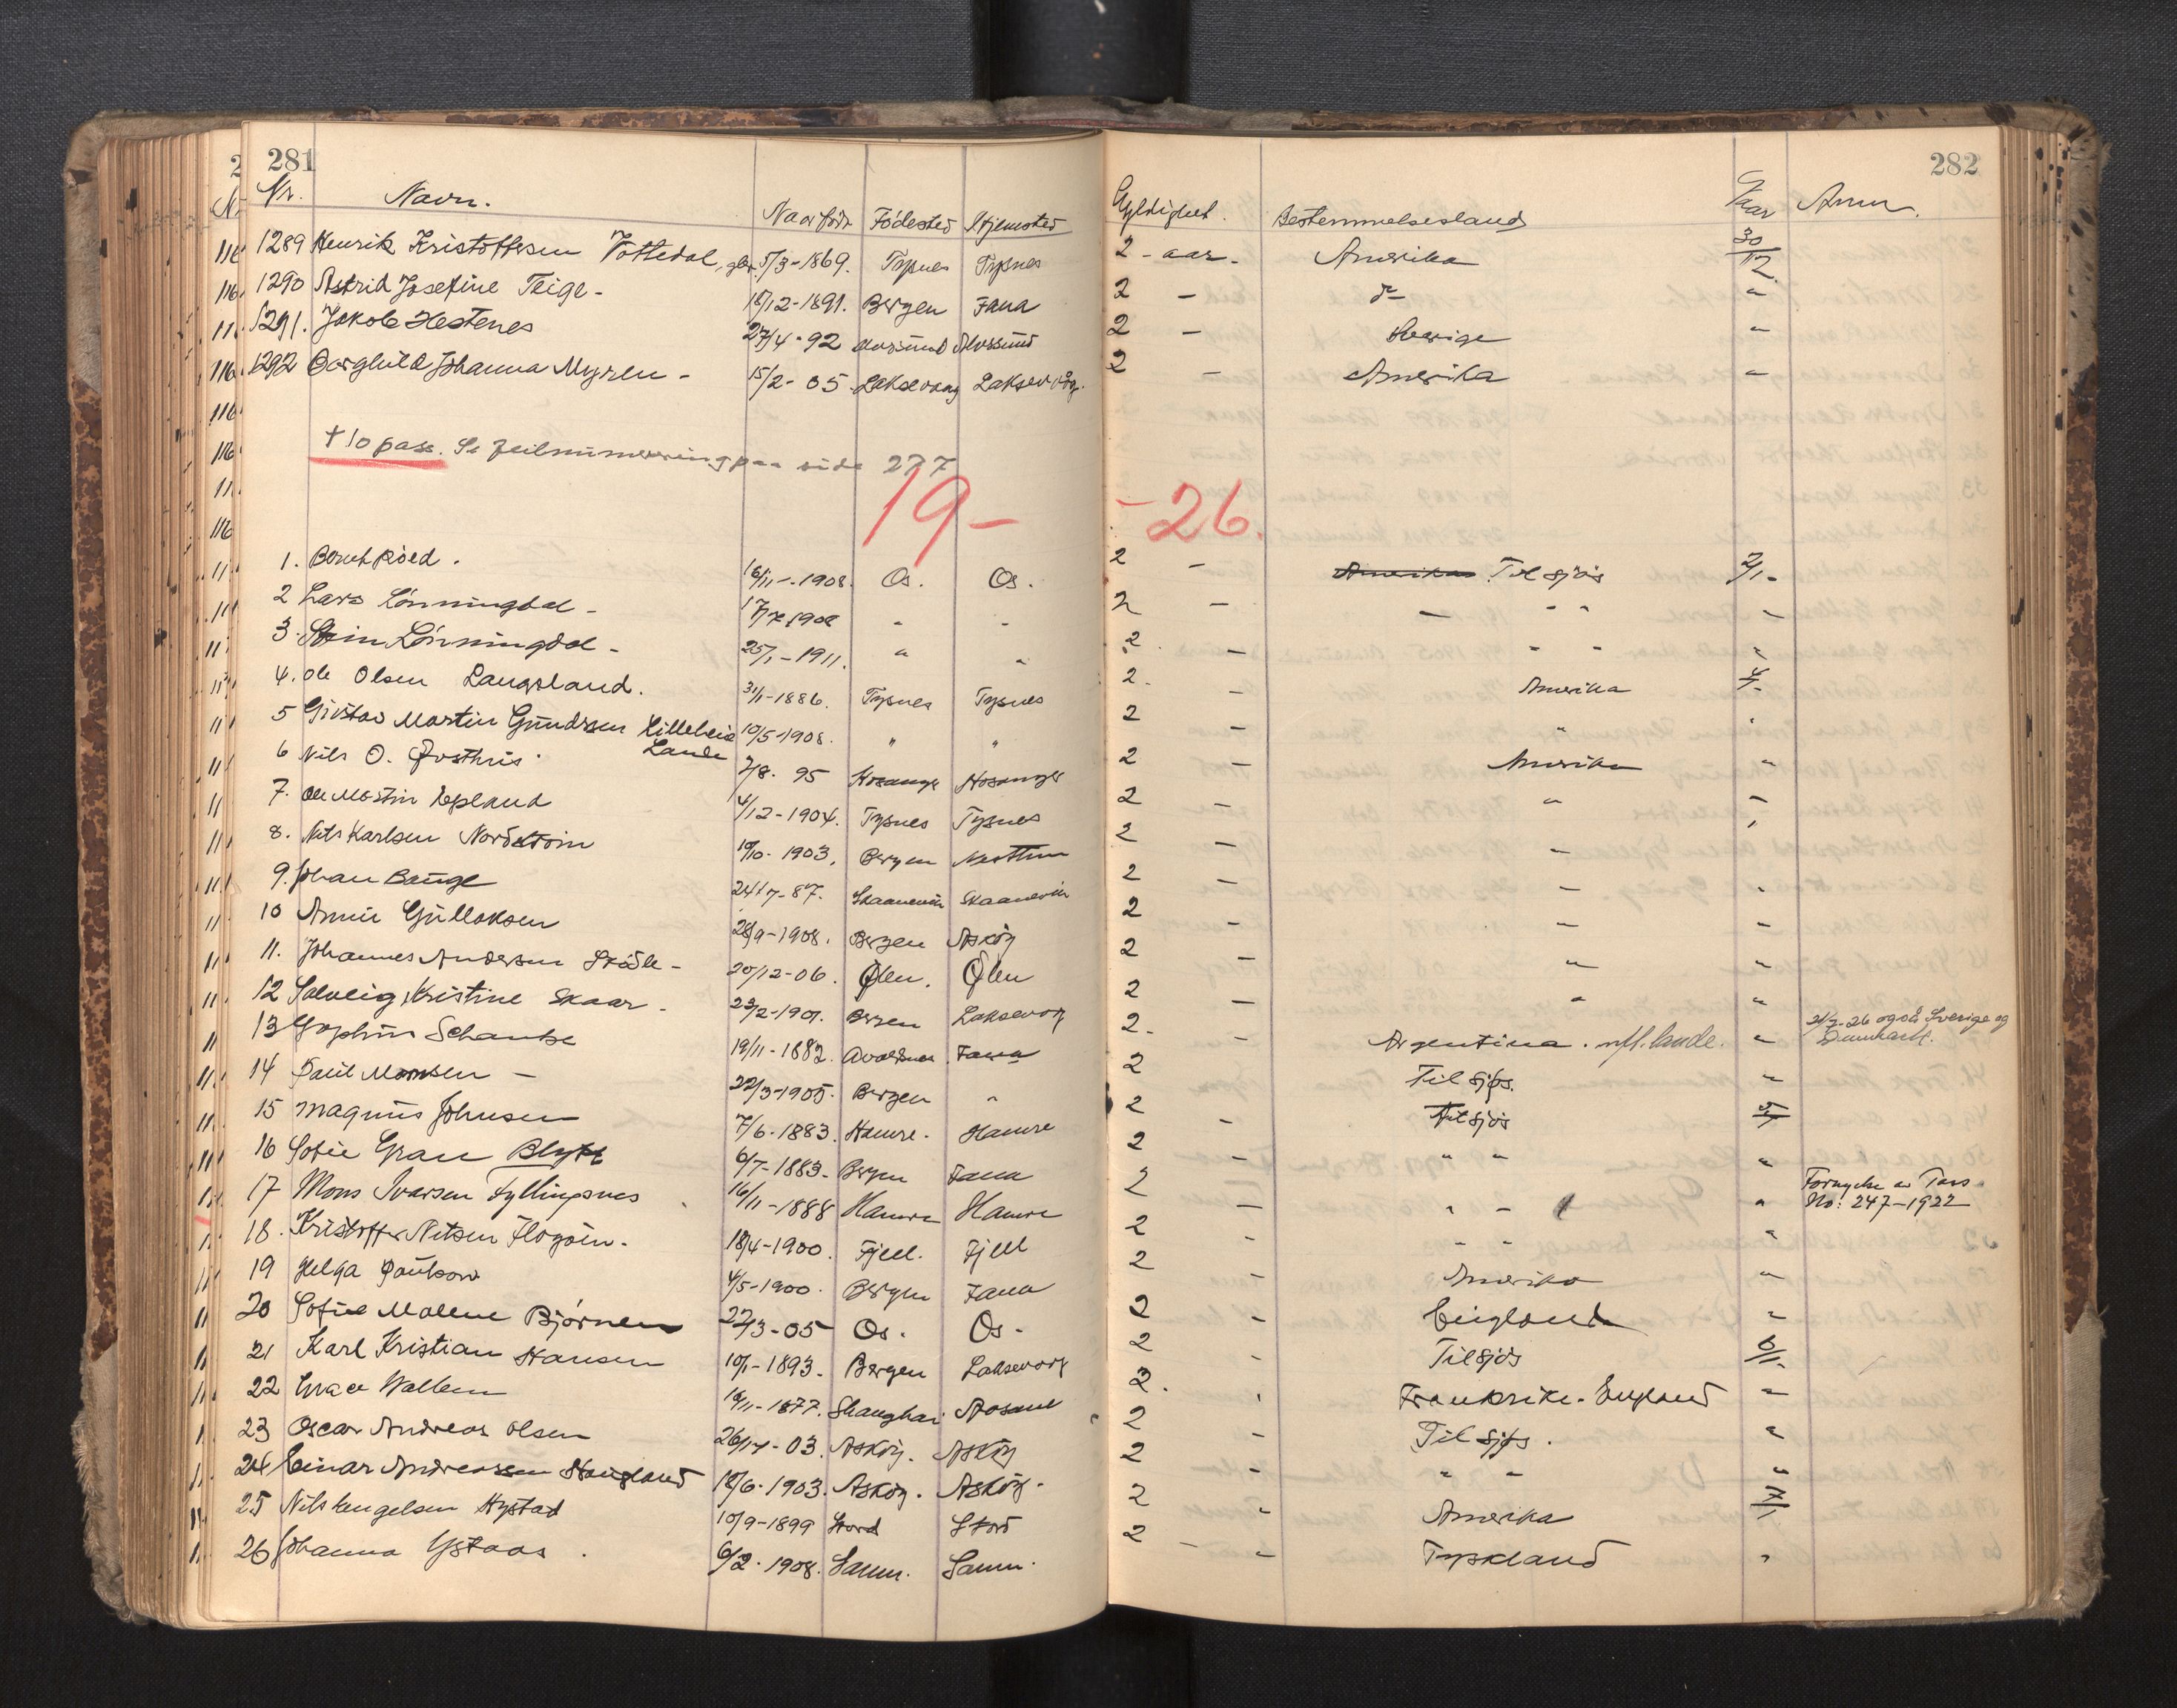 281
282
Nr. Navn. Naar född Födested Hjemsted Gyldighet. Bestemmelsesland Naar Anm.
1289 Henrik Kristoffersen Vottedal, 5/3-1869. Tysnes Tysnes 2 - aar - Amerika 30/12
1290 Astrid Josefine Teige - 18/12-1891. Bergen Fana 2 - do "
1291. Jakob Hestenes 27/4-92 2 - Sverige "
1292 Borghild Johanna Myren - 15/2-05 Laksevaag Laksevåg. 2 - Amerika "
+ 10 pass. Se feilnummerering paa side 277
19- -26.
1. Berent Röed. 16/11-1908. Os. Os. 2 - Amerika Til sjös 2/1-
2 Lars Lönningdal - 2 - - " " "
3. Stein Lönningdal - 25/1-1911. " " 2. - " " "
4. Ole Olsen Langeland. 31/1-1886. Tysnes Tysnes 2. - Amerika 4/1-
5 Gustav Martin Gundersen Lilleheie Lande 10/5-1908. " " 2 - " "
6 Nils O. 2/8. 95 Hosanger Hosanger 2 - Amerika "
7. Ole Martin Epland 4/12-1904. Tysnes Tysnes 2 - " "
8. Nils Karlsen Nordström 10/10-1903. Bergen Nesttun 2 - " "
9. Johan Bauge 24/7-87. Skaanevik Skaanevik 2 - " "
10 Annie Gullaksen 28/9-1908. Bergen Asköy 2 - " "
11. Johannes Andersen Stödle - 20/12-06 Ølen. Ølen 2 - " "
12 Solveig Kristine Skaar - 23/2-1901. Bergen Laksevog 2 - " "
13 Schanke 19/11-1882. Avaldsnes Fana 2. - Argentina. m/fl. lande. " 21/7-26 også Sverige og Danmark.
14 Paul Monsen - 22/3-1905. Bergen " 2 Til sjøs. "
15 Magnus Johnsen 7/6-1883. Hamre. Hamre 2 - Til sjös 5/1
16 Sofie Gran Blytt 6/7-1883. Bergen Fana 2 - " " "
17 Mons Ivarsen Fyllingsnes 16/11-1888 Hamre Hamre 2 - " - " Fornyelse av Pass No: 247-1922
18. Kristoffer Nilsen Flogöin. 18/4-1900. Fjell. Fjell 2 - - - "
19 Helga Paulson 4/5-1900. Bergen Fana 2 - Amerika "
20 Sofie Malene Björnen 22/3-05 Os. Os - 2 - England "
21 Karl Kristian Hansen 10/1-1893. Bergen Laksevog 2 - Til sjös 6/1-
22 Grace Wallem 19/11-1877. Shanghai Aasane 2. " Frankrike. England "
23 Oscar Andreas Olsen Asköy. Asköy 2 - Til sjøs. "
24 Einar Andreassen Haugland 18/6-1903. Asköy. Asköy. 2 - " - "
25 Nils Engelsen Hystad 10/9-1899 Stord Stord 2 " Amerika 7/1
26 Johanna Ystaas. 6/2-1908. Samn. Samn. 2 - " Tyskland "